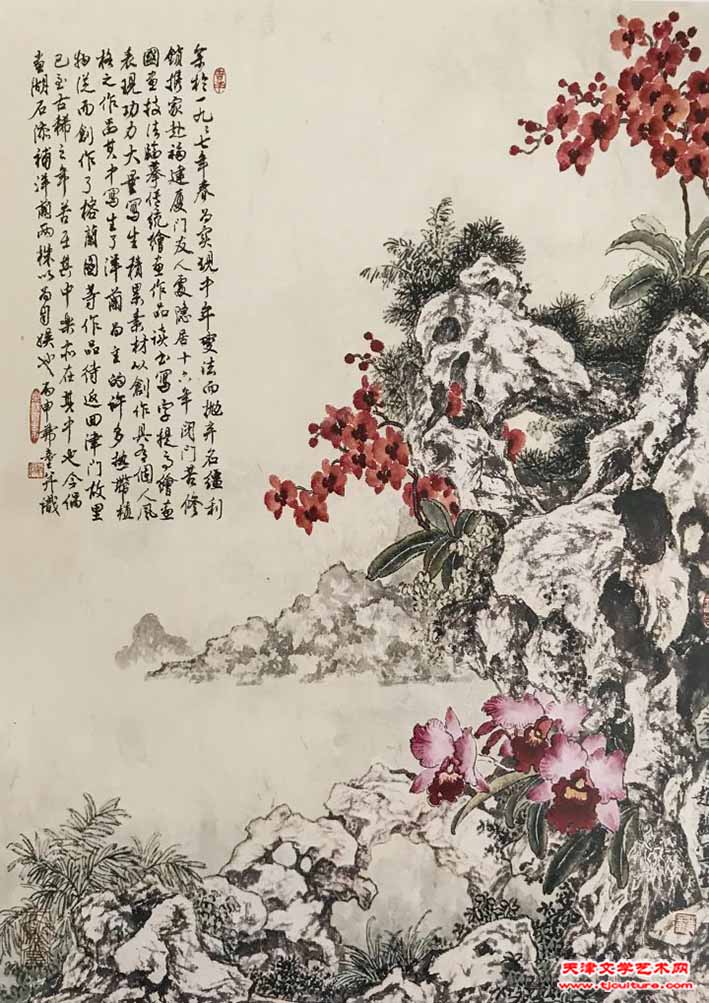 余於一九々七年春为实现中年变法而抛弃名缰利
锁携家赴福建厦门友人處隐居十六年闭门苦修
國画技法临摹传统繪画作品读书寫字提高繪画
表现功力大量寫生積累素材以創作具有個人风
格之作品其中寫生了洋蘭为主的许多热帶植
物從而創作了榕蘭圖等作品待返回津门故里
已至古稀之年苦在其中樂亦在其中也今偶
画湖石添補洋蘭两株以为自娱也丙申 并識
天津文学艺术网
www.tjculture.com